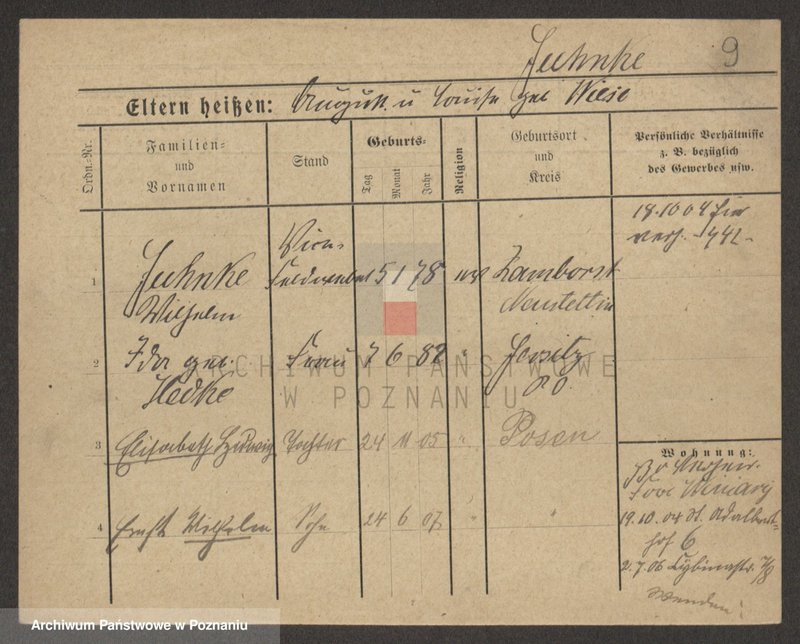 Juhnke 9
Eltern heißen: August u Louise geb Wiese
Ordn.-Nr.
Familien-
und
Vornamen
Stand
Geburts-
Tag
Monat
Jahr
Religion
Geburtsort
und
Kreis
Persönliche Verhältnisse
z. B. bezüglich
des Gewerbes usw.
18.10 04
1 Juhnke
Wilhelm
Vice-
Feldwebel 5 1 78 ev Zamborst
Neustettin
2 Ida geb.
Hedke
Frau 7 6 82 " Jersitz
P. O.
3 Elisabeth Hedwig Tochter 24 11 05 " Posen
4 Ernst Wilhelm Sohn 24 6 07 " "
Wohnung:
Winiary
19.10. 04 St. Adalbert-
hof 6
2.7.06 Lybinastr. 7/8
Wenden!
ARCHIWUM PAŃSTWOWE
W POZNANIU
Archiwum Państwowe w Poznaniu